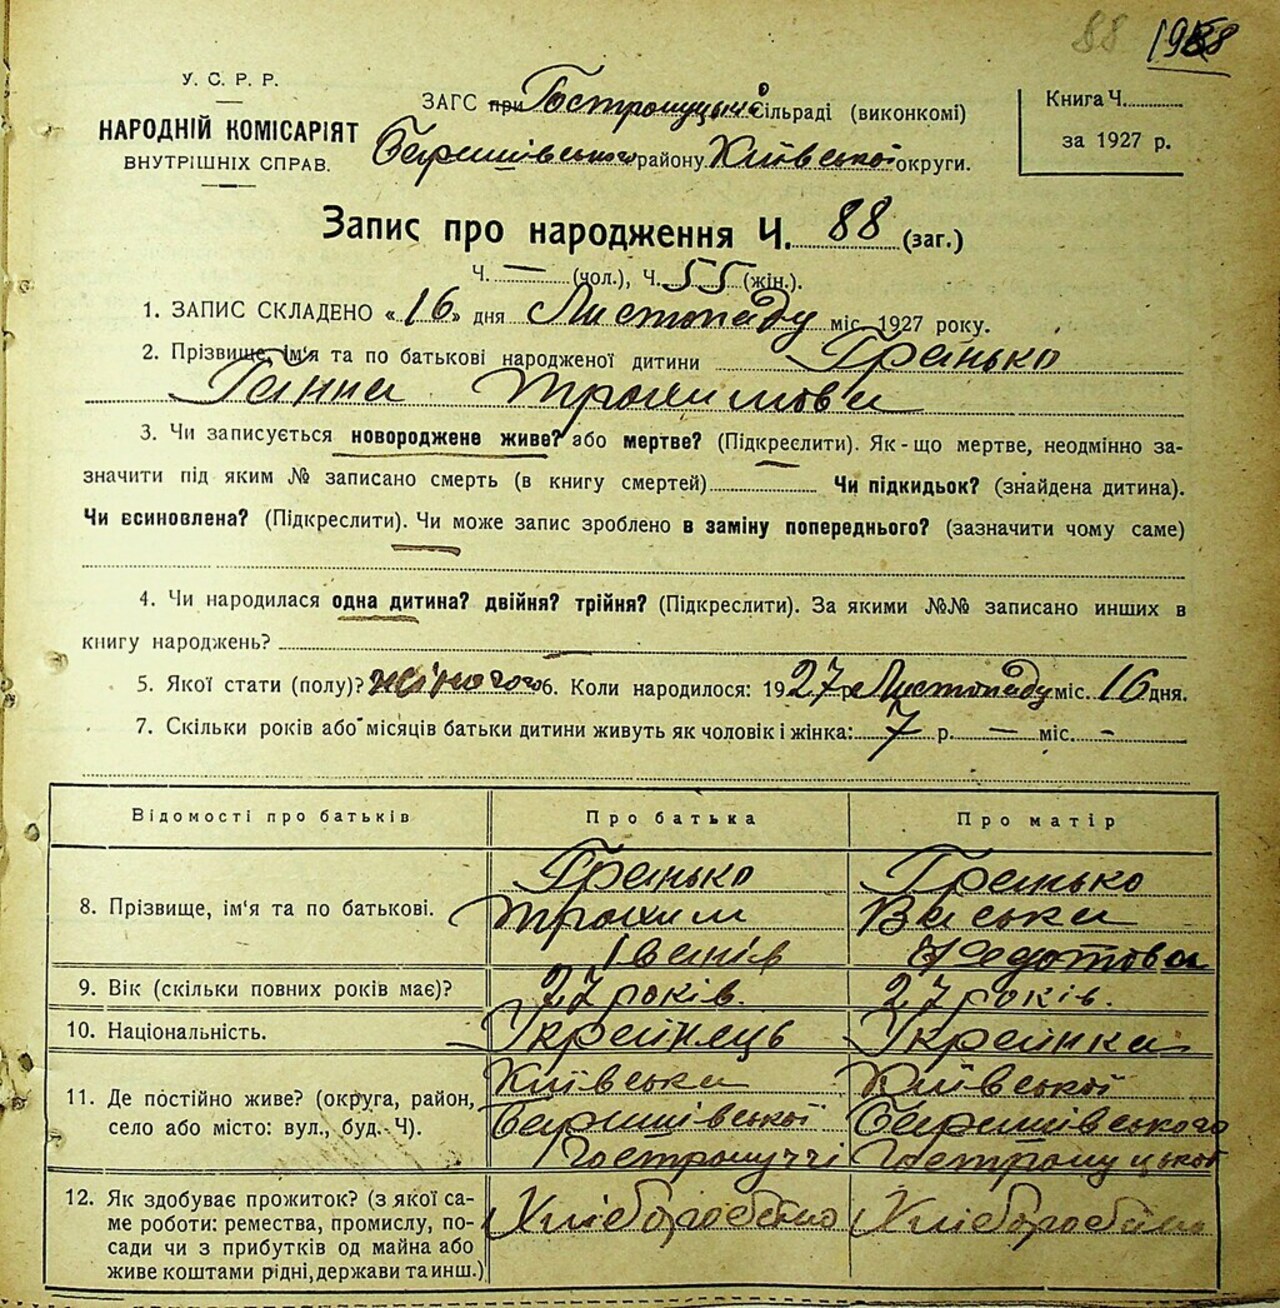 88 1988
У. С. Р. Р.
НАРОДНІЙ КОМІСАРІЯТ
ВНУТРІШНІХ СПРАВ.
ЗАГС при Гостролуцькій Сільраді (виконкомі)
Баришівського району Київської округи.
Книга Ч.
за 1927 р.
Запис про народження Ч. 88 (заг.)
Ч. — (чол.), Ч. 55 (жін.).
1. ЗАПИС СКЛАДЕНО « 16 » дня Листопаду міс. 1927 року.
2. Прізвище, ім'я та по батькові народженої дитини Гранько
Ганна Трохимовна
3. Чи записується новороджене живе? або мертве? (Підкреслити). Як-що мертве, неодмінно за-
значити під яким № записано смерть (в книгу смертей) Чи підкидьок? (знайдена дитина).
Чи всиновлена? (Підкреслити). Чи може запис зроблено в заміну попереднього? (зазначити чому саме)
4. Чи народилася одна дитина? двійня? трійня? (Підкреслити). За якими №№ записано инших в
книгу народжень? —
5. Якої стати (полу)? жіночого 6. Коли народилося: 1927 р. Листопаду міс. 16 дня.
7. Скільки років або місяців батьки дитини живуть як чоловік і жінка: 7 р. — міс. -
Відомості про батьків Про батька Про матір
8. Прізвище, ім'я та по батькові. Гранько Трохим Іванів Гранько Васька Федотовна
9. Вік (скільки повних років має)? 27 років. 27 років.
10. Національність. Українець Українка
11. Де постійно живе? (округа, район, Київська Київської
село або місто: вул., буд. Ч). Баришівської Баришівського
Гостролуччі Гостролуцької
12. Як здобуває прожиток? (з якої са- Хліборобство Хліборобство
ме роботи: ремества, промислу, по-
сади чи з прибутків од майна або
живе коштами рідні, держави та инш.)